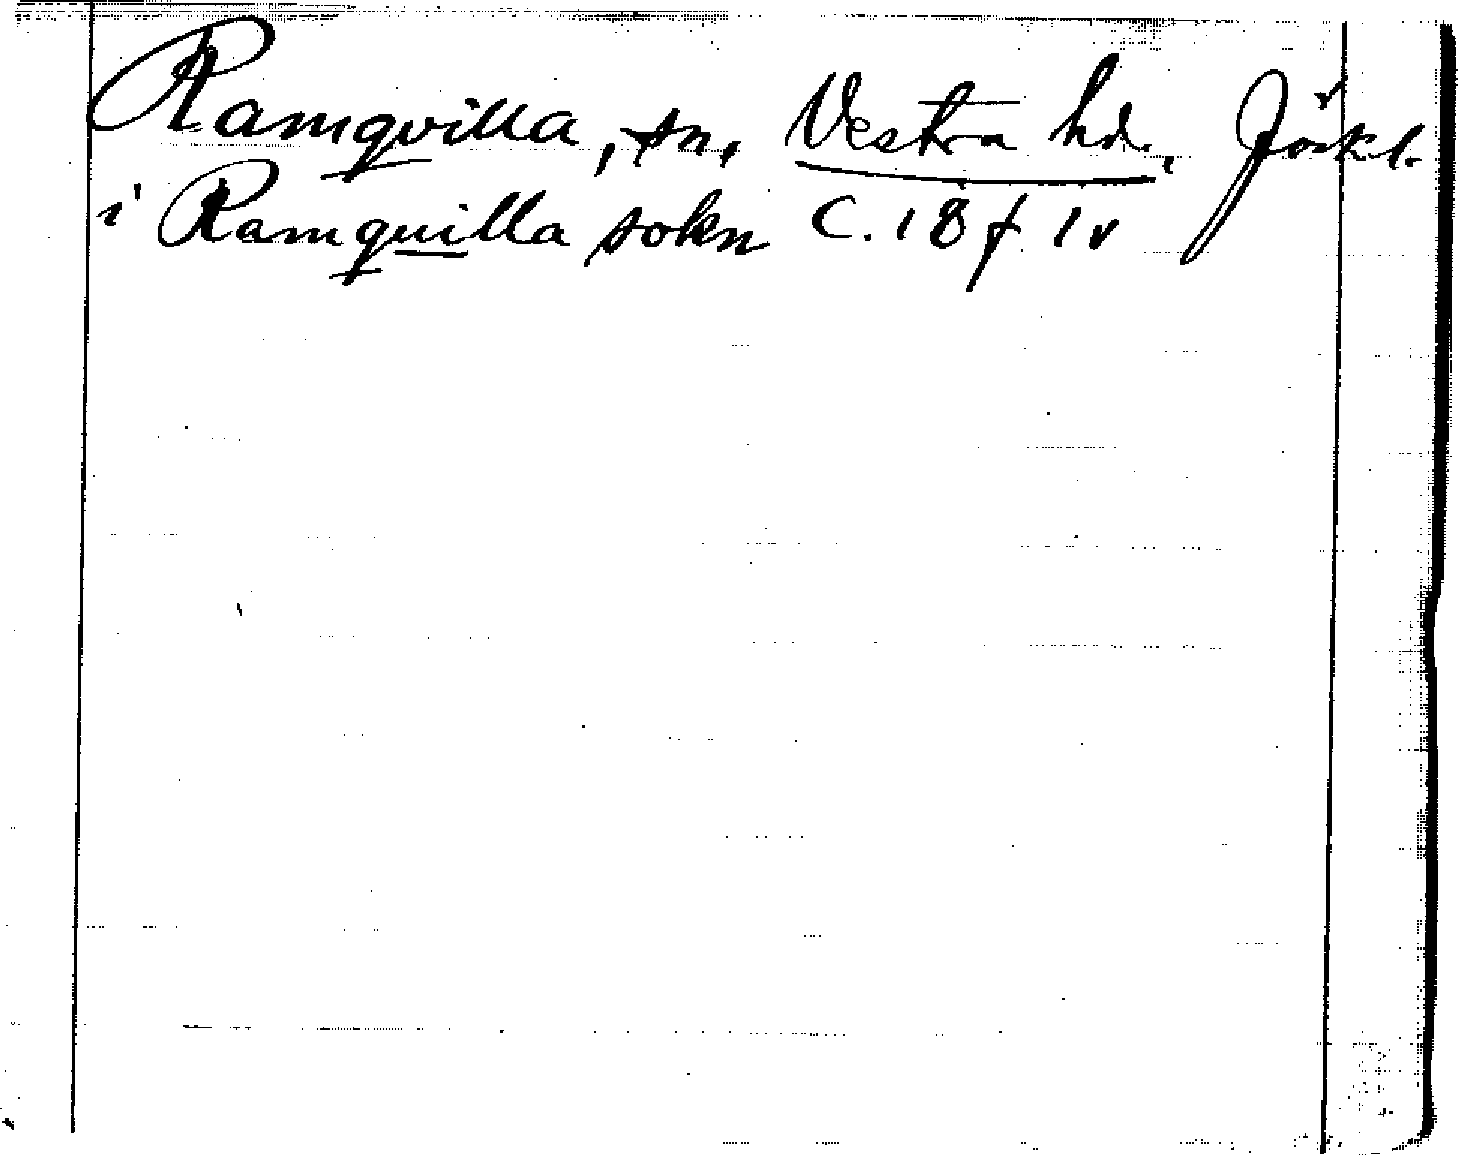 Ramqvilla, sn, Vestra hd., Jönkl.
i Ramquilla sokn C. 18 f 1v